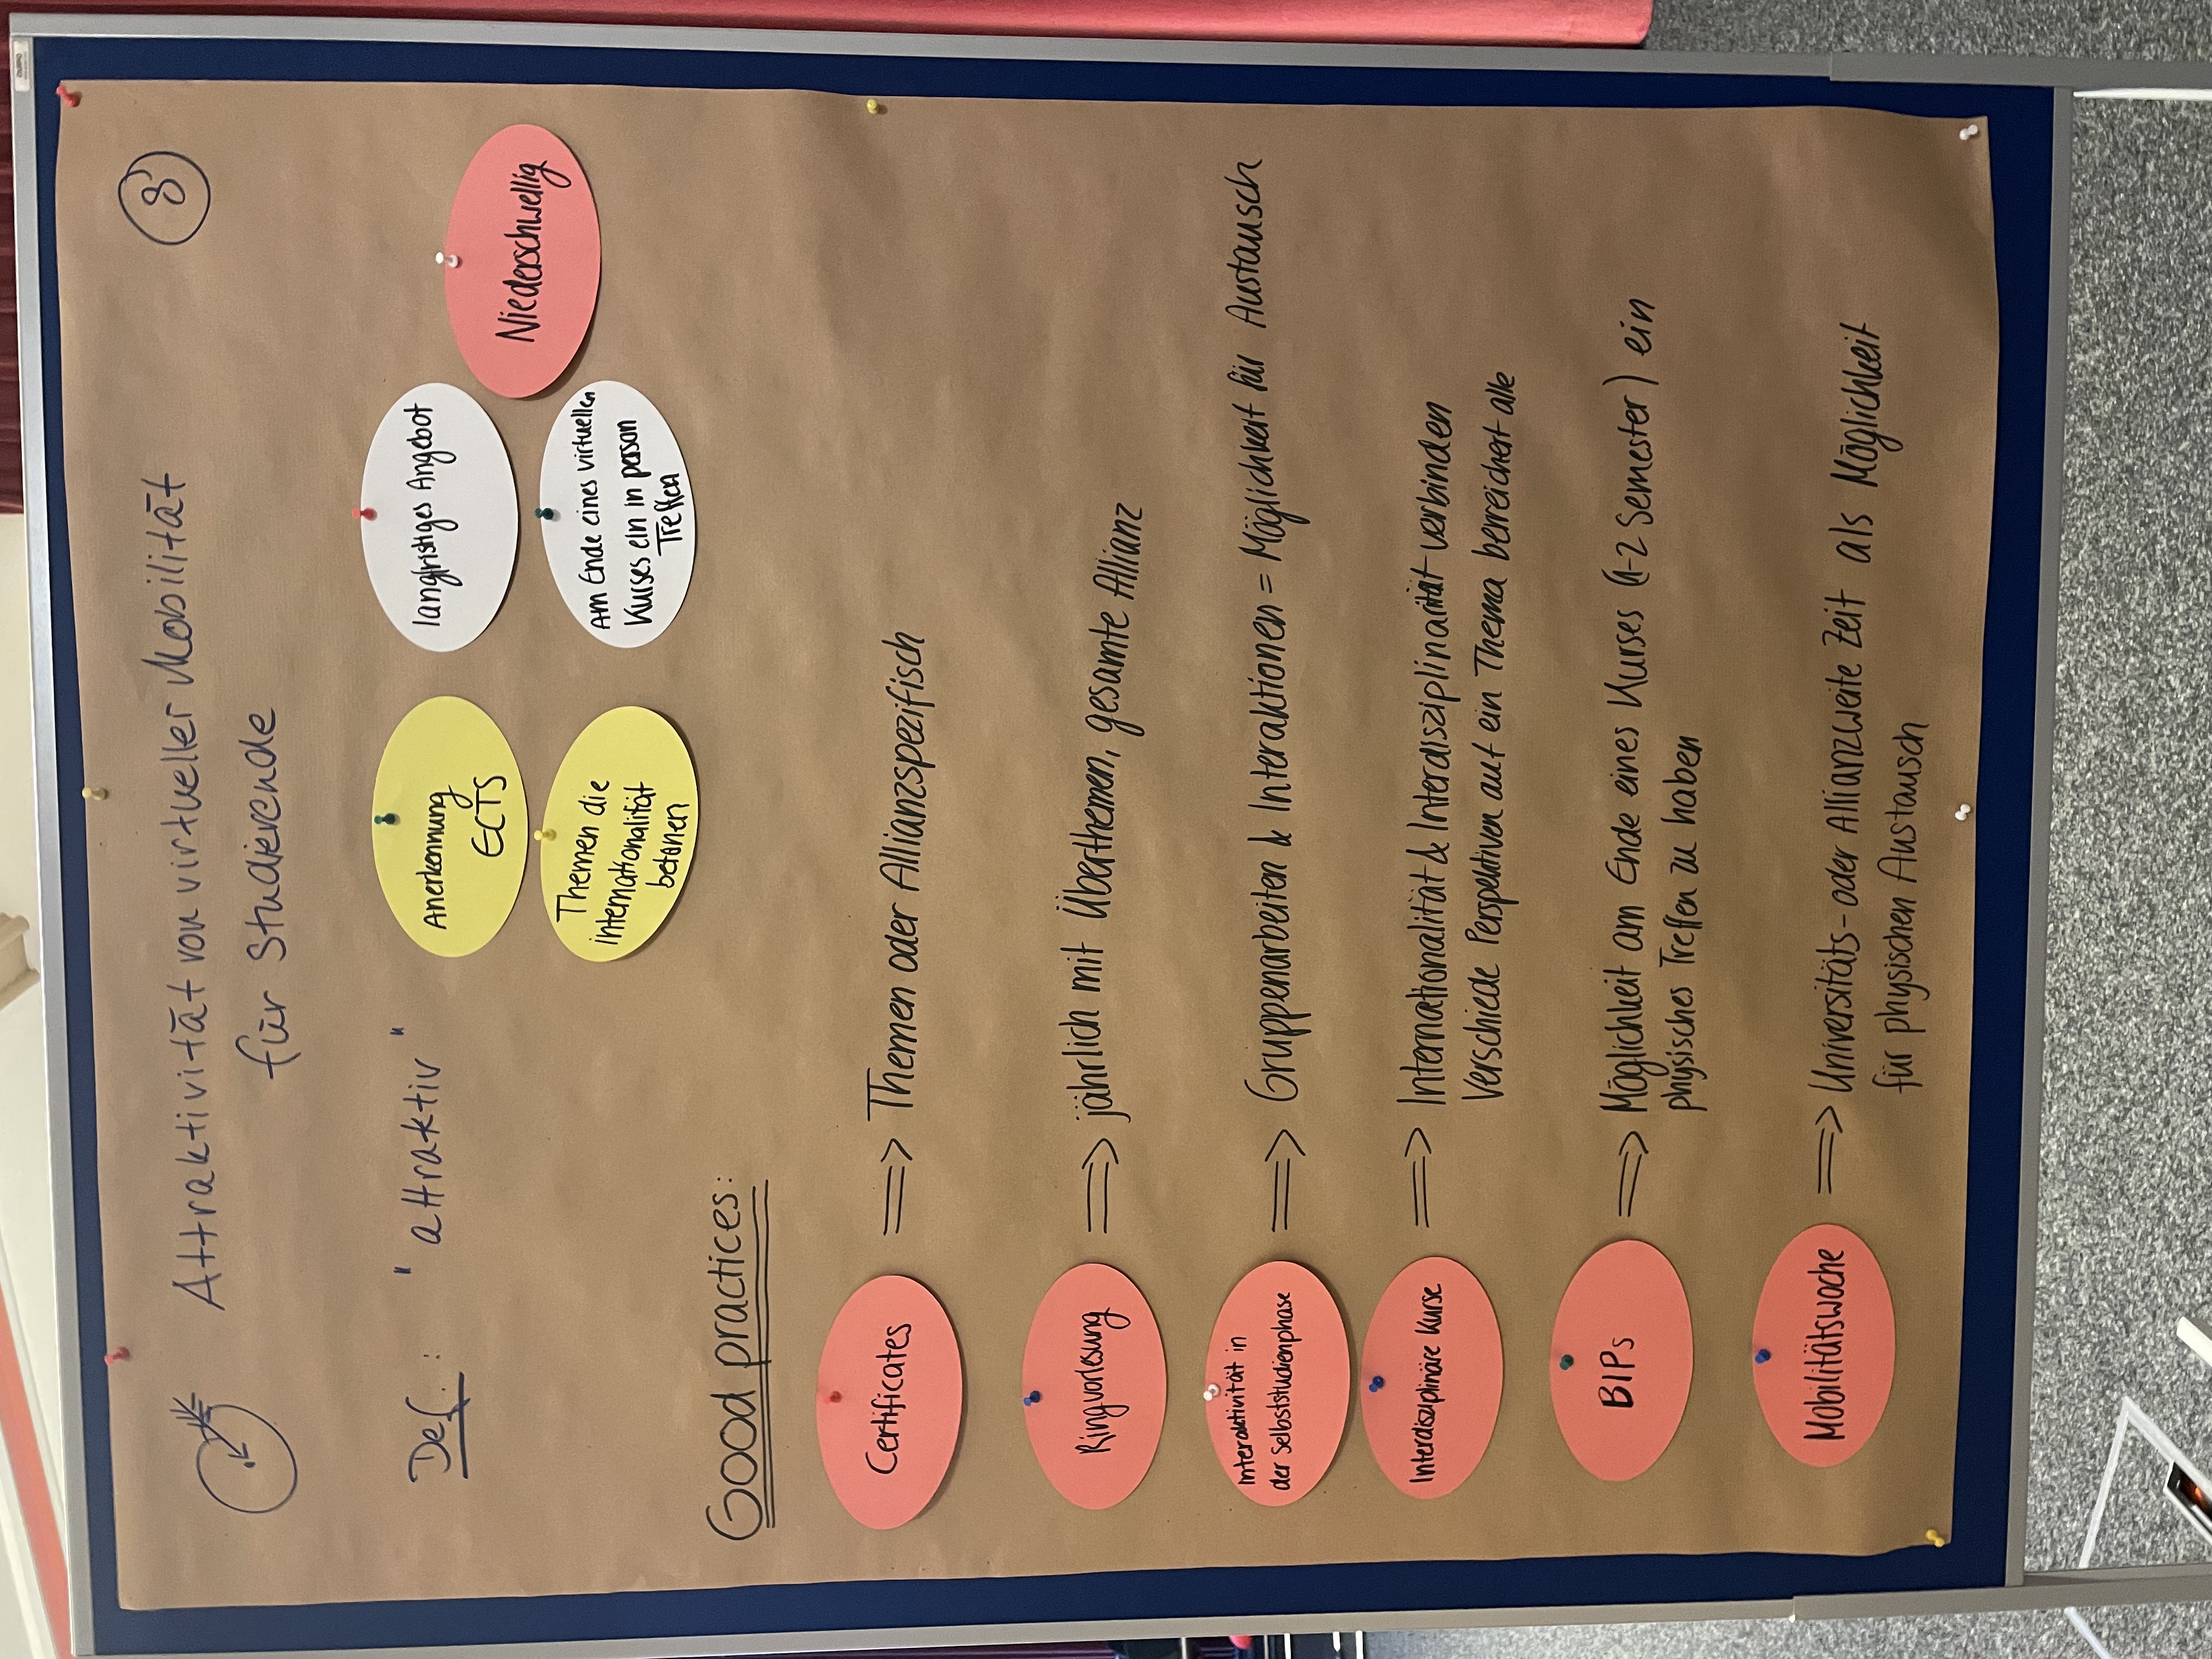 Attraktivität von virtueller Mobilität
für Studierende
8
Def.: "attraktiv"
Anerkennung
ECTS
langfristiges Angebot
Niederschwellig
Themen die
internationalität
betonen
Am Ende eines virtuellen
Kurses ein in person
Treffen
Good practices:
Certificates
=> Themen oder Allianzspezifisch
Ringvorlesung
=> jährlich mit Überthemen, gesamte Allianz
Interaktivität in
der Selbststudienphase
=> Gruppenarbeiten & Interaktionen = Möglichkeit für Austausch
Interdisziplinäre Kurse
=> Internationalität & Interdisziplinarität verbinden
Verschiede Perspektiven auf ein Thema bereichert alle
BIPs
=> Möglichkeit am Ende eines Kurses (1-2 Semester) ein
physisches Treffen zu haben
Mobilitätswoche
=> Universitäts- oder Allianzweite Zeit als Möglichkeit
für physischen Austausch